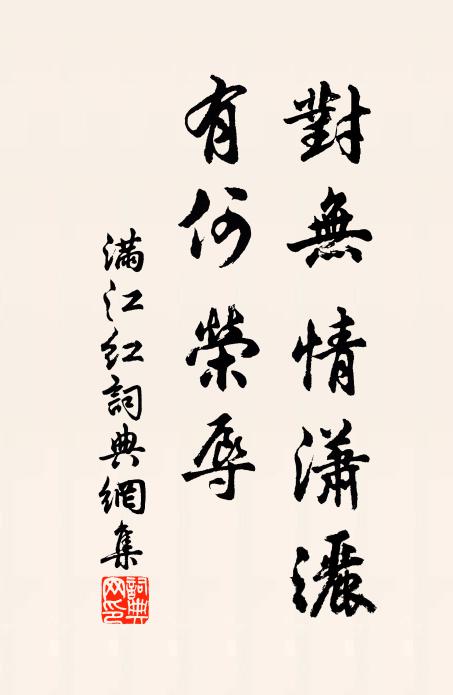 對無情瀟灑
有何榮辱
滿江紅詞典網集
詞典网印